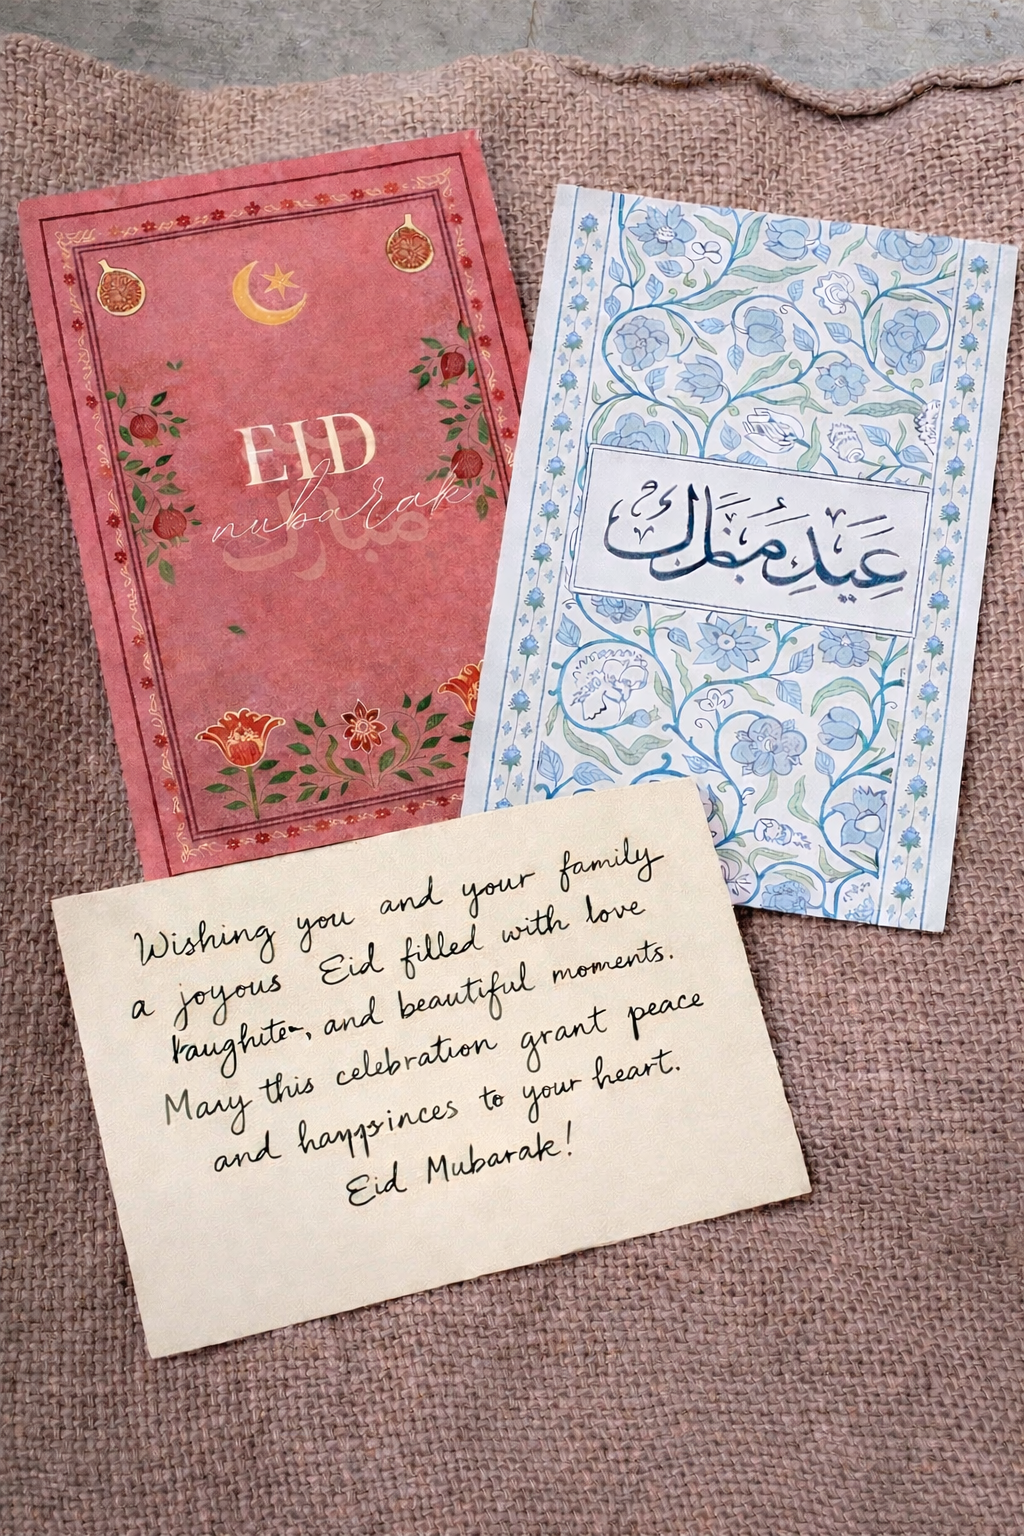 EID
nubarak
مبارك
عيد مبارك
Wishing you and your family
a joyous Eid filled with love
laughter, and beautiful moments.
May this celebration grant peace
and to your heart.
Eid Mubarak!